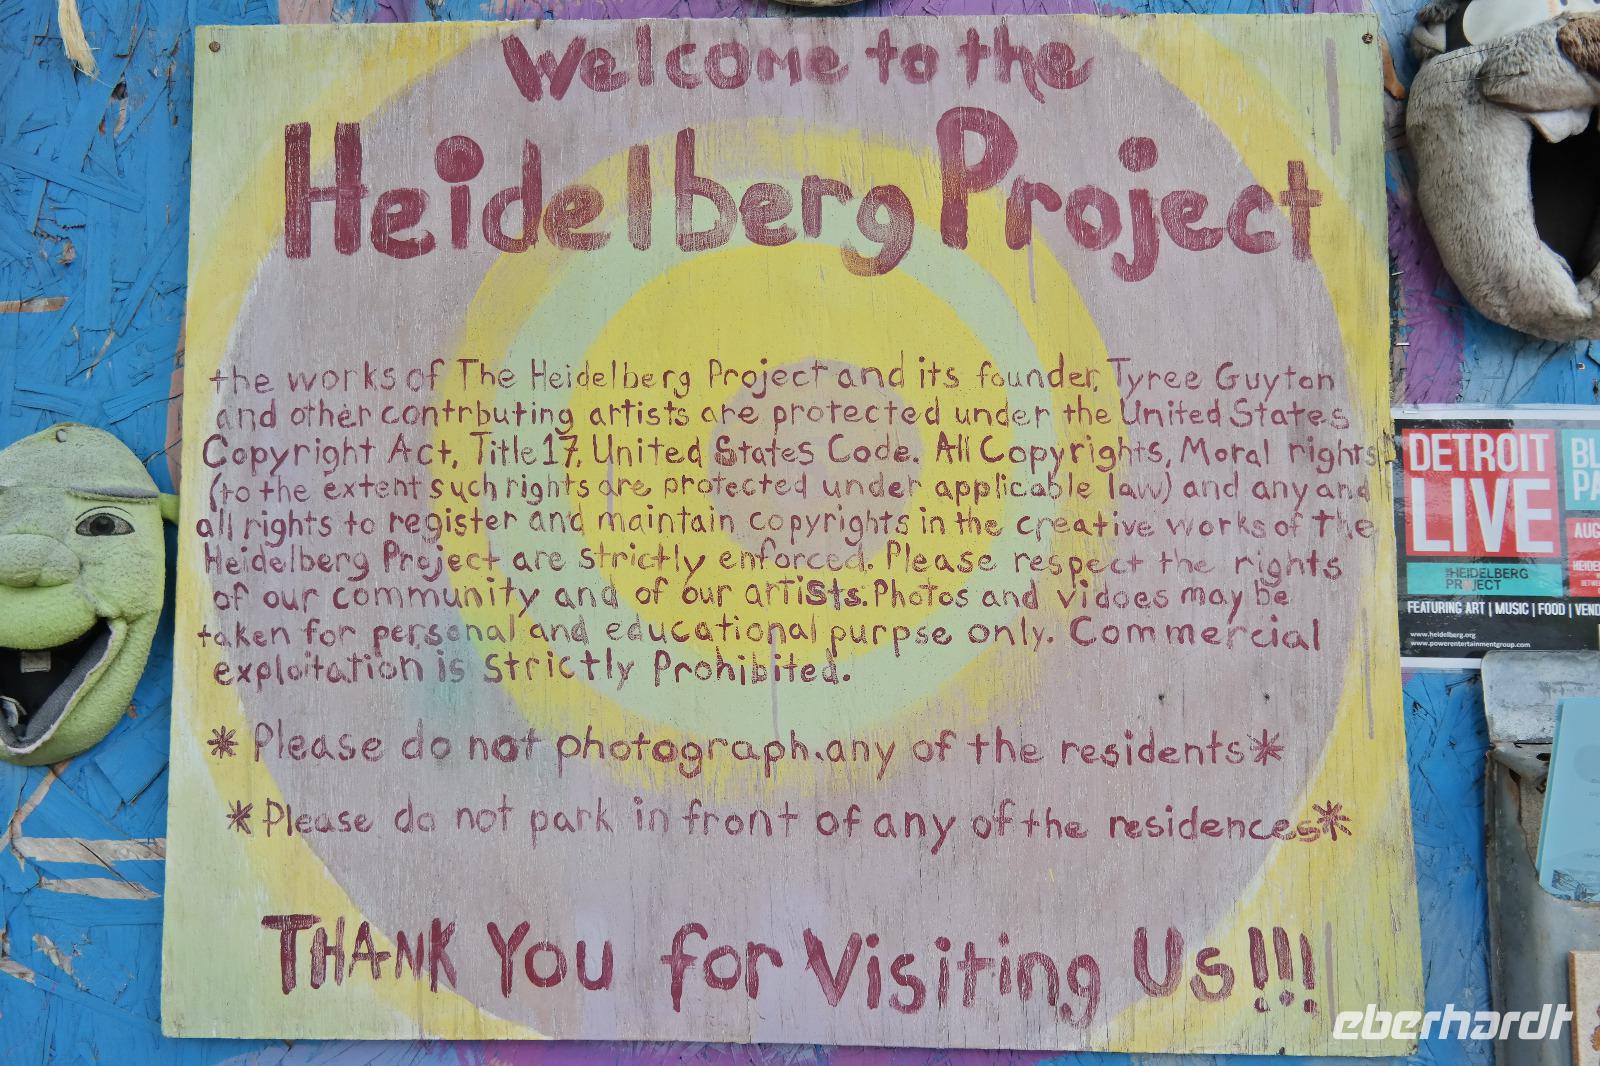 Welcome to the
Heidelberg Project
the works of The Heidelberg Project and its founder, Tyree Guyton
and other contrbuting artists are protected under the United States
Copyright Act, Title 17, United States Code. All Copyrights, Moral rights
(to the extent such rights are protected under applicable law) and any and
all rights to register and maintain copyrights in the creative works of the
Heidelberg Project are strictly enforced. Please respect the rights
of our community and of our artists. Photos and vidoes may be
taken for personal and educational purpse only. Commercial
exploitation is Strictly Prohibited.
*Please do not photograph.any of the residents*
*Please do not park in front of any of the residences*
THANK You for Visiting Us!!!
DETROIT
LIVE
#HEIDELBERG
PROJECT
FEATURING ART | MUSIC | FOOD | VEND
www.heidelberg.org
www.powerentertainmentgroup.com
BL
PA
AUG
HEIDE
eberhardt